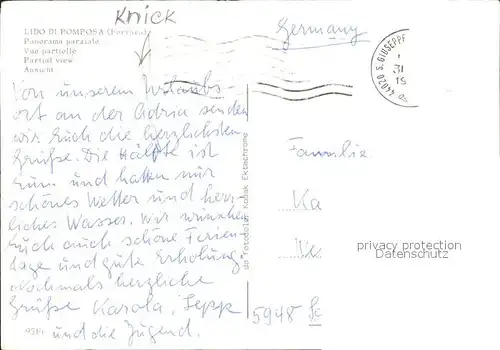 Knick
LIDO DI POMPOSA (Ferrara)
Panorama parziale
Vue partielle
Partial view
Ansicht
Germany
44020 S. GIUSEPPE
Von unserem Urlaubs-
ort an der Adria senden
wir Euch die herzlichsten
Grüße. Die Hälfte ist
rum und hatten nur
schönes Wetter und herr-
liches Wasser. Wir wünschen
Euch auch schöne Ferien-
tage und gute Erholung.
Nochmals herzliche
Grüße Karola, Sepp
und die Jugend.
da Fotocolor Kodak Ektachrome
Familie
Ka
We
privacy protection
Datenschutz
5948 Sc